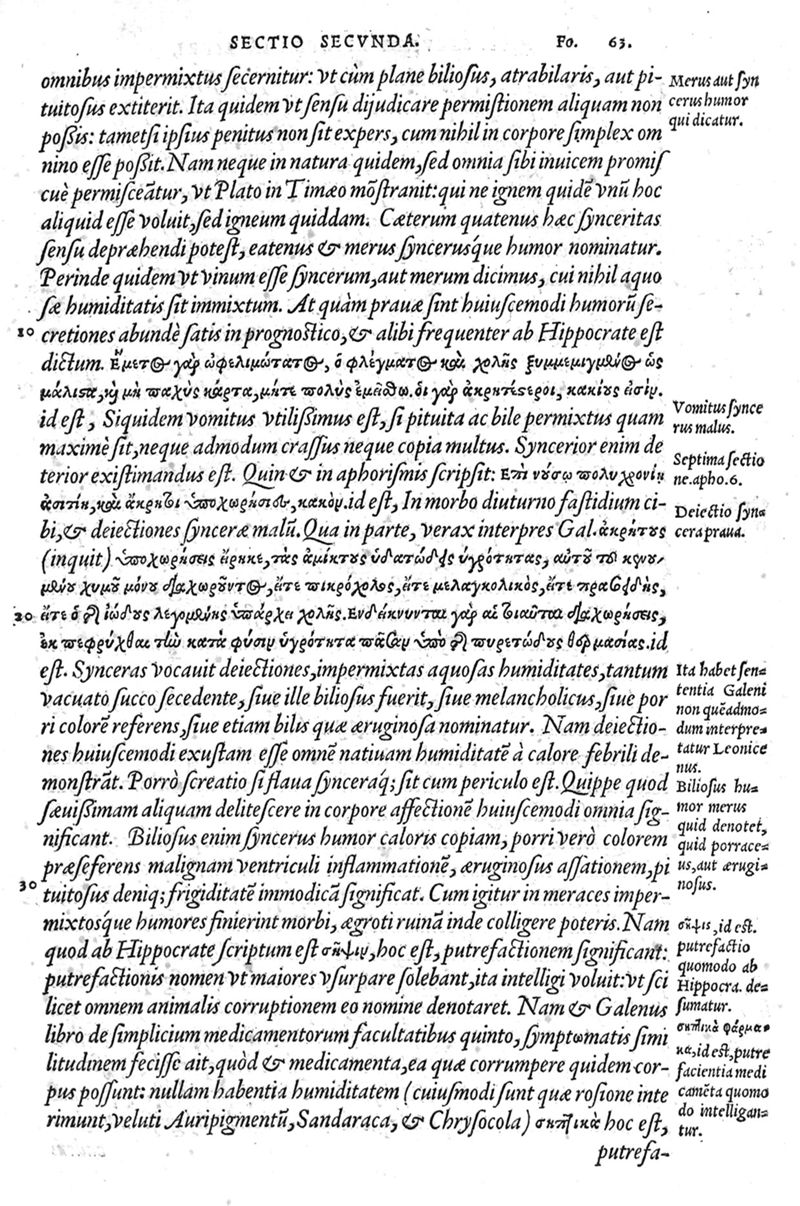 SECTIO SECVNDA. Fo. 63.
omnibus impermixtus ſecernitur: vt cùm plane bilioſus, atrabilaris, aut pi-
tuitoſus extiterit. Ita quidem vt ſenſu dijudicare permiſtionem aliquam non
poſsis: tametſi ipſius penitus non ſit expers, cum nihil in corpore ſimplex om
nino eſſe poſsit. Nam neque in natura quidem, ſed omnia ſibi inuicem promiſ
cuè permiſceãtur, vt Plato in Timæo mõſtranit: qui ne ignem quidẽ vnũ hoc
aliquid eſſe voluit, ſed igneum quiddam. Cæterum quatenus hæc ſynceritas
ſenſu depræhendi poteſt, eatenus & merus ſyncerusq́ue humor nominatur.
Perinde quidem vt vinum eſſe ſyncerum, aut merum dicimus, cui nihil aquo
ſæ humiditatis ſit immixtum. At quàm prauæ ſint huiuſcemodi humorũ ſe-
10 cretiones abundè ſatis in prognoſtico, & alibi frequenter ab Hippocrate eſt
dictum. Ἔμετος γὰρ ὠφελιμώτατος, ὁ φλέγματος καὶ χολῆς ξυμμεμιγμένος ὡς
μάλιϛα, κὴ μὴ παχὺς κάρτα, μήτε πολὺς ἐμείσθω. ὁι γὰρ ἀκρητέϛεροι, κακίους ἐισίν.
id eſt, Siquidem vomitus vtiliſsimus eſt, ſi pituita ac bile permixtus quam
maximè ſit, neque admodum craſſus neque copia multus. Syncerior enim de
terior exiſtimandus eſt. Quin & in aphoriſmis ſcripſit: Επὶ νούσῳ πολυχρονίῃ
ἀσιτίη, καὶ ἄκρητοι ὑποχωρήσιες, κακόν. id eſt, In morbo diuturno faſtidium ci-
bi, & deiectiones ſynceræ malũ. Qua in parte, verax interpres Gal. ἀκρήτους
(inquit) ὑποχωρήσεις ἔιρηκε, τὰς ἀμίκτους ὑδατώδεις ὑγρότητας, αὐτοῦ τοῦ κενου-
μένου χυμοῦ μόνου διαχωροῦντος, ἔιτε πικρόχολος, ἔιτε μελαγχολικὸς, ἔιτε πρασοειδὴς,
20 ἔιτε ὁ τῆς ἰώδους λεγομένης ὑπάρχει χολῆς. Ενδείκνυνται γὰρ αἱ τοιαῦται διαχωρήσεις,
ἐκ πεφρύχθαι τὴν κατὰ φύσιν ὑγρότητα πᾶσαν ὑπὸ τῆς πυρετώδους θερμασίας. id
eſt. Synceras vocauit deiectiones, impermixtas aquoſas humiditates, tantum
vacuato ſucco ſecedente, ſiue ille bilioſus fuerit, ſiue melancholicus, ſiue por
ri colorẽ referens, ſiue etiam bilis quæ æruginoſa nominatur. Nam deiectio-
nes huiuſcemodi exuſtam eſſe omnẽ natiuam humiditatẽ à calore febrili de-
monſtrãt. Porrò ſcreatio ſi flaua ſynceraq́; ſit cum periculo eſt. Quippe quod
ſæuiſsimam aliquam deliteſcere in corpore affectionẽ huiuſcemodi omnia ſig-
nificant. Bilioſus enim ſyncerus humor caloris copiam, porri verò colorem
præſeferens malignam ventriculi inflammationẽ, æruginoſus aſſationem, pi
30 tuitoſus deniq; frigiditatẽ immodicã ſignificat. Cum igitur in meraces imper-
mixtosq́ue humores finierint morbi, ægroti ruinã inde colligere poteris. Nam
quod ab Hippocrate ſcriptum eſt σῆψιν, hoc eſt, putrefactionem ſignificant:
putrefactionis nomen vt maiores vſurpare ſolebant, ita intelligi voluit: vt ſci
licet omnem animalis corruptionem eo nomine denotaret. Nam & Galenus
libro de ſimplicium medicamentorum facultatibus quinto, ſymptωmatis ſimi
litudinem feciſſe ait, quòd & medicamenta, ea quæ corrumpere quidem cor-
pus poſſunt: nullam habentia humiditatem (cuiuſmodi ſunt quæ roſione inte
rimunt, veluti Auripigmentũ, Sandaraca, & Chryſocola) σηπτικὰ hoc eſt,
putrefa-
Merus aut ſyn
cerus humor
qui dicatur.
Vomitus ſynce
rus malus.
Septima ſectio
ne. apho. 6.
Deiectio ſyn=
cera praua.
Ita habet ſen=
tentia Galeni
non quẽadmo=
dum interpre=
tatur Leonice
nus.
Bilioſus hu=
mor merus
quid denotet,
quid porrace=
us, aut ærugi=
noſus.
σῆψις, id eſt.
putrefactio
quomodo ab
Hippocra. de=
ſumatur.
σηπτικὰ φάρμα=
κα, id eſt, putre
facientia medi
camẽta quomo
do intelligan=
tur.